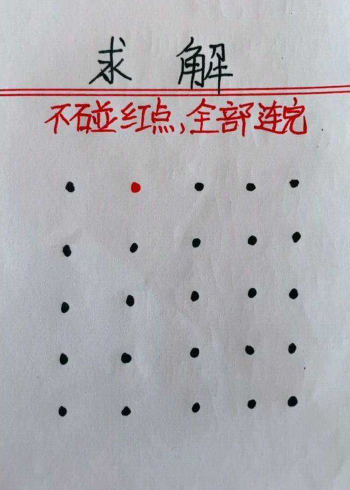 求 解
不碰红点,全部连完